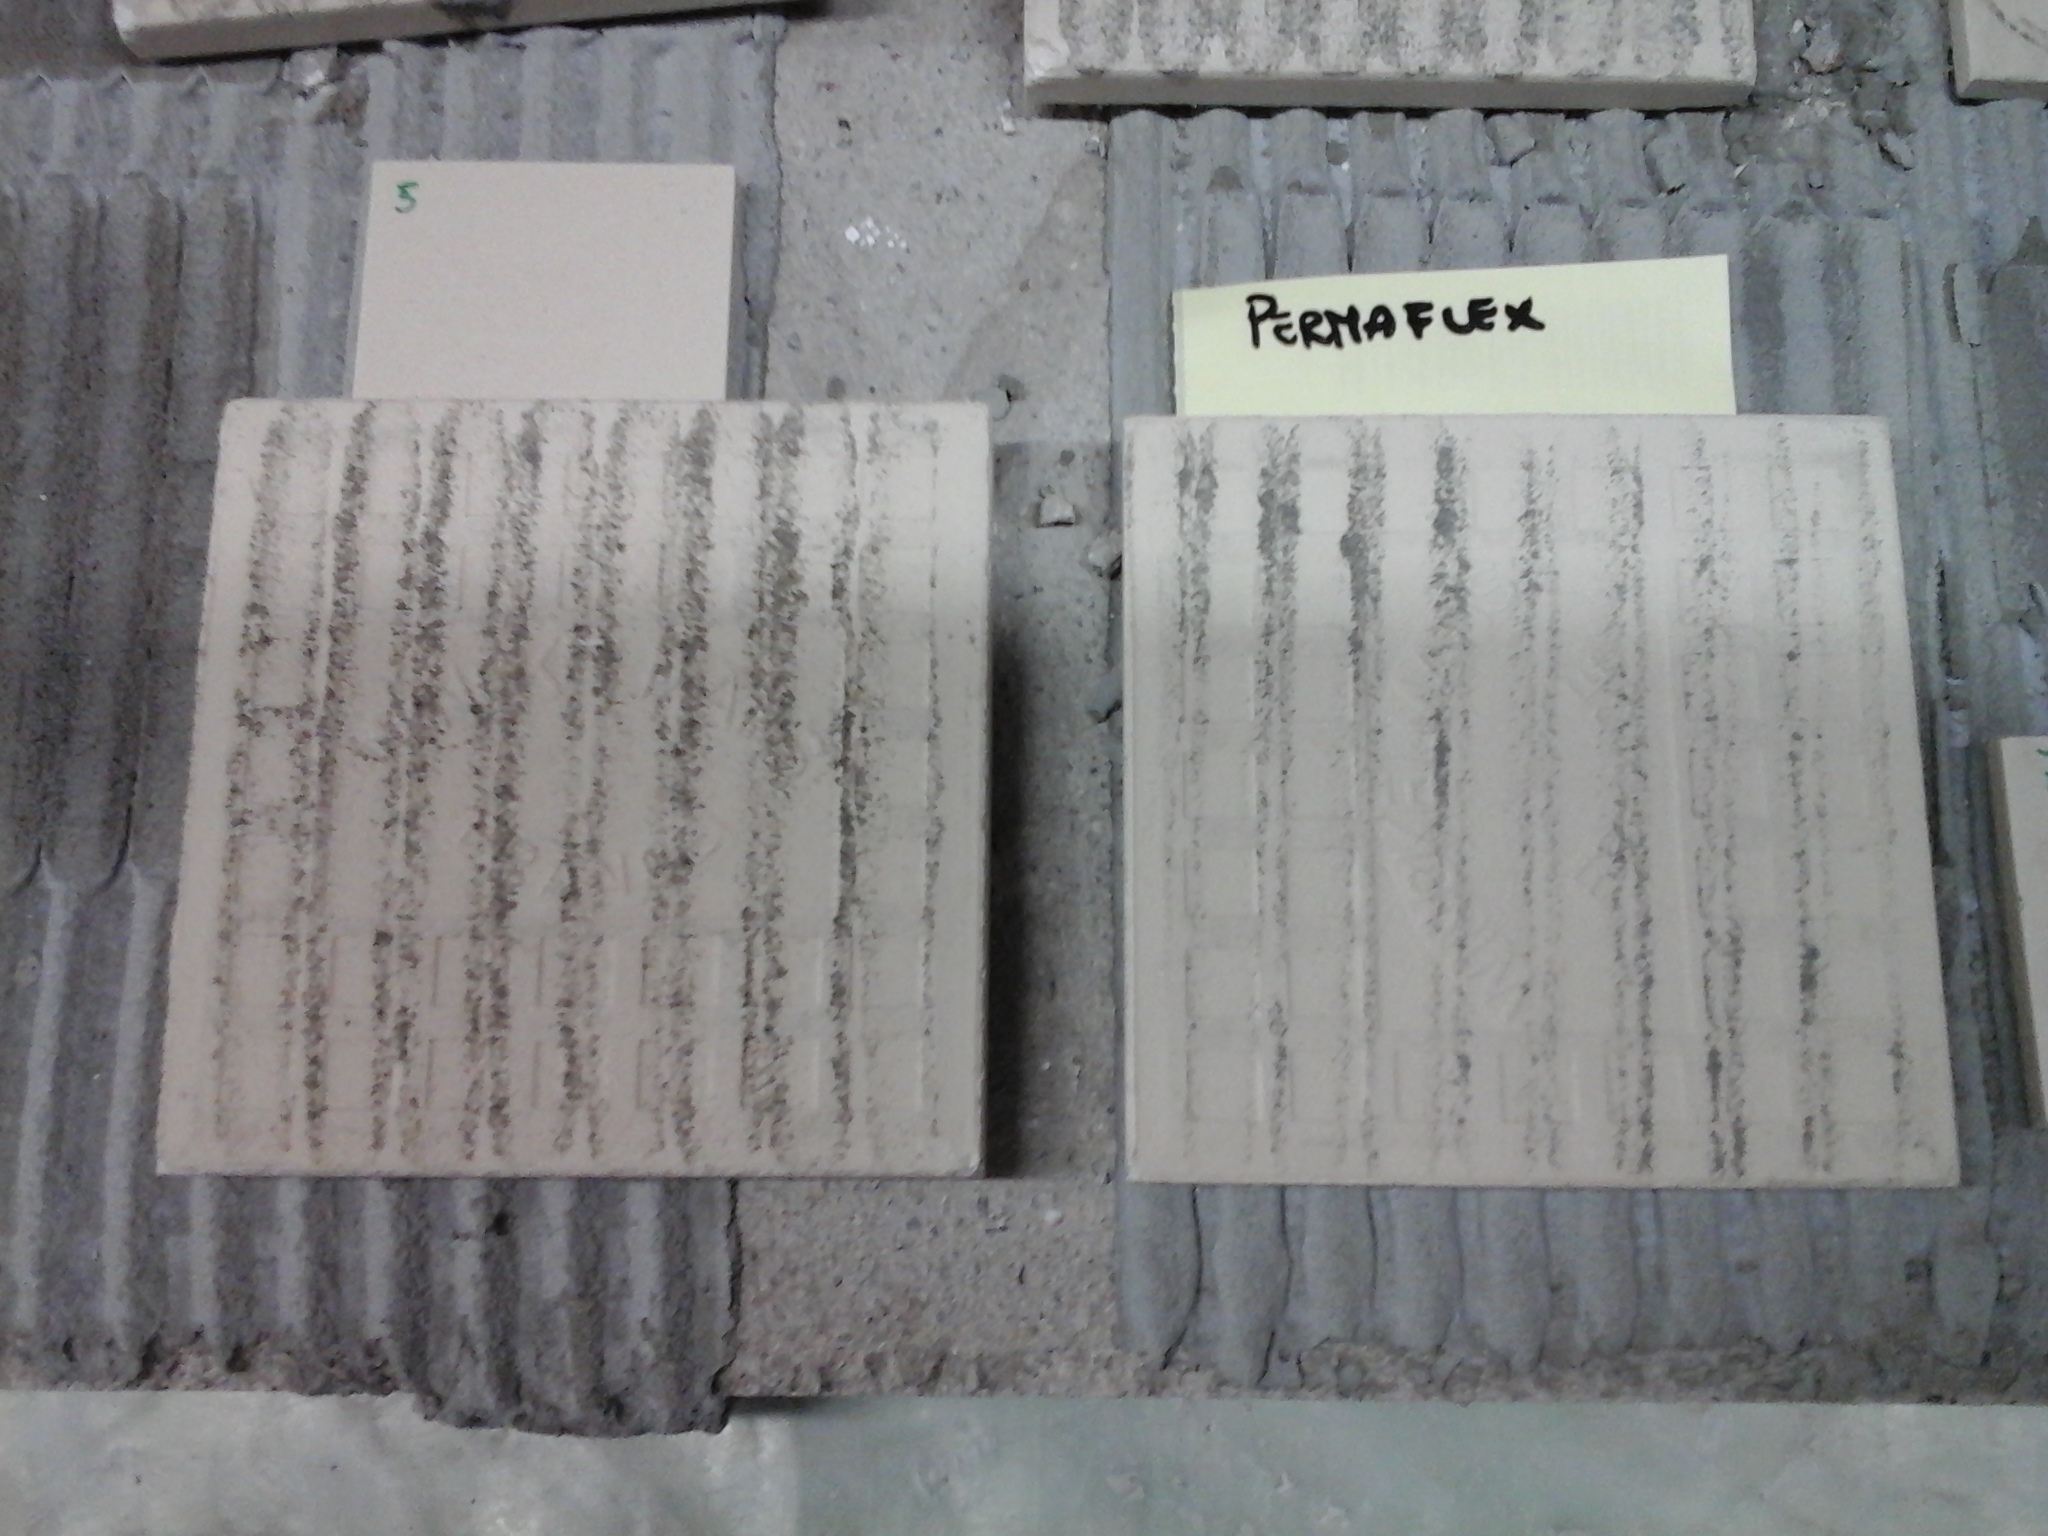 5
PERMAFLEX